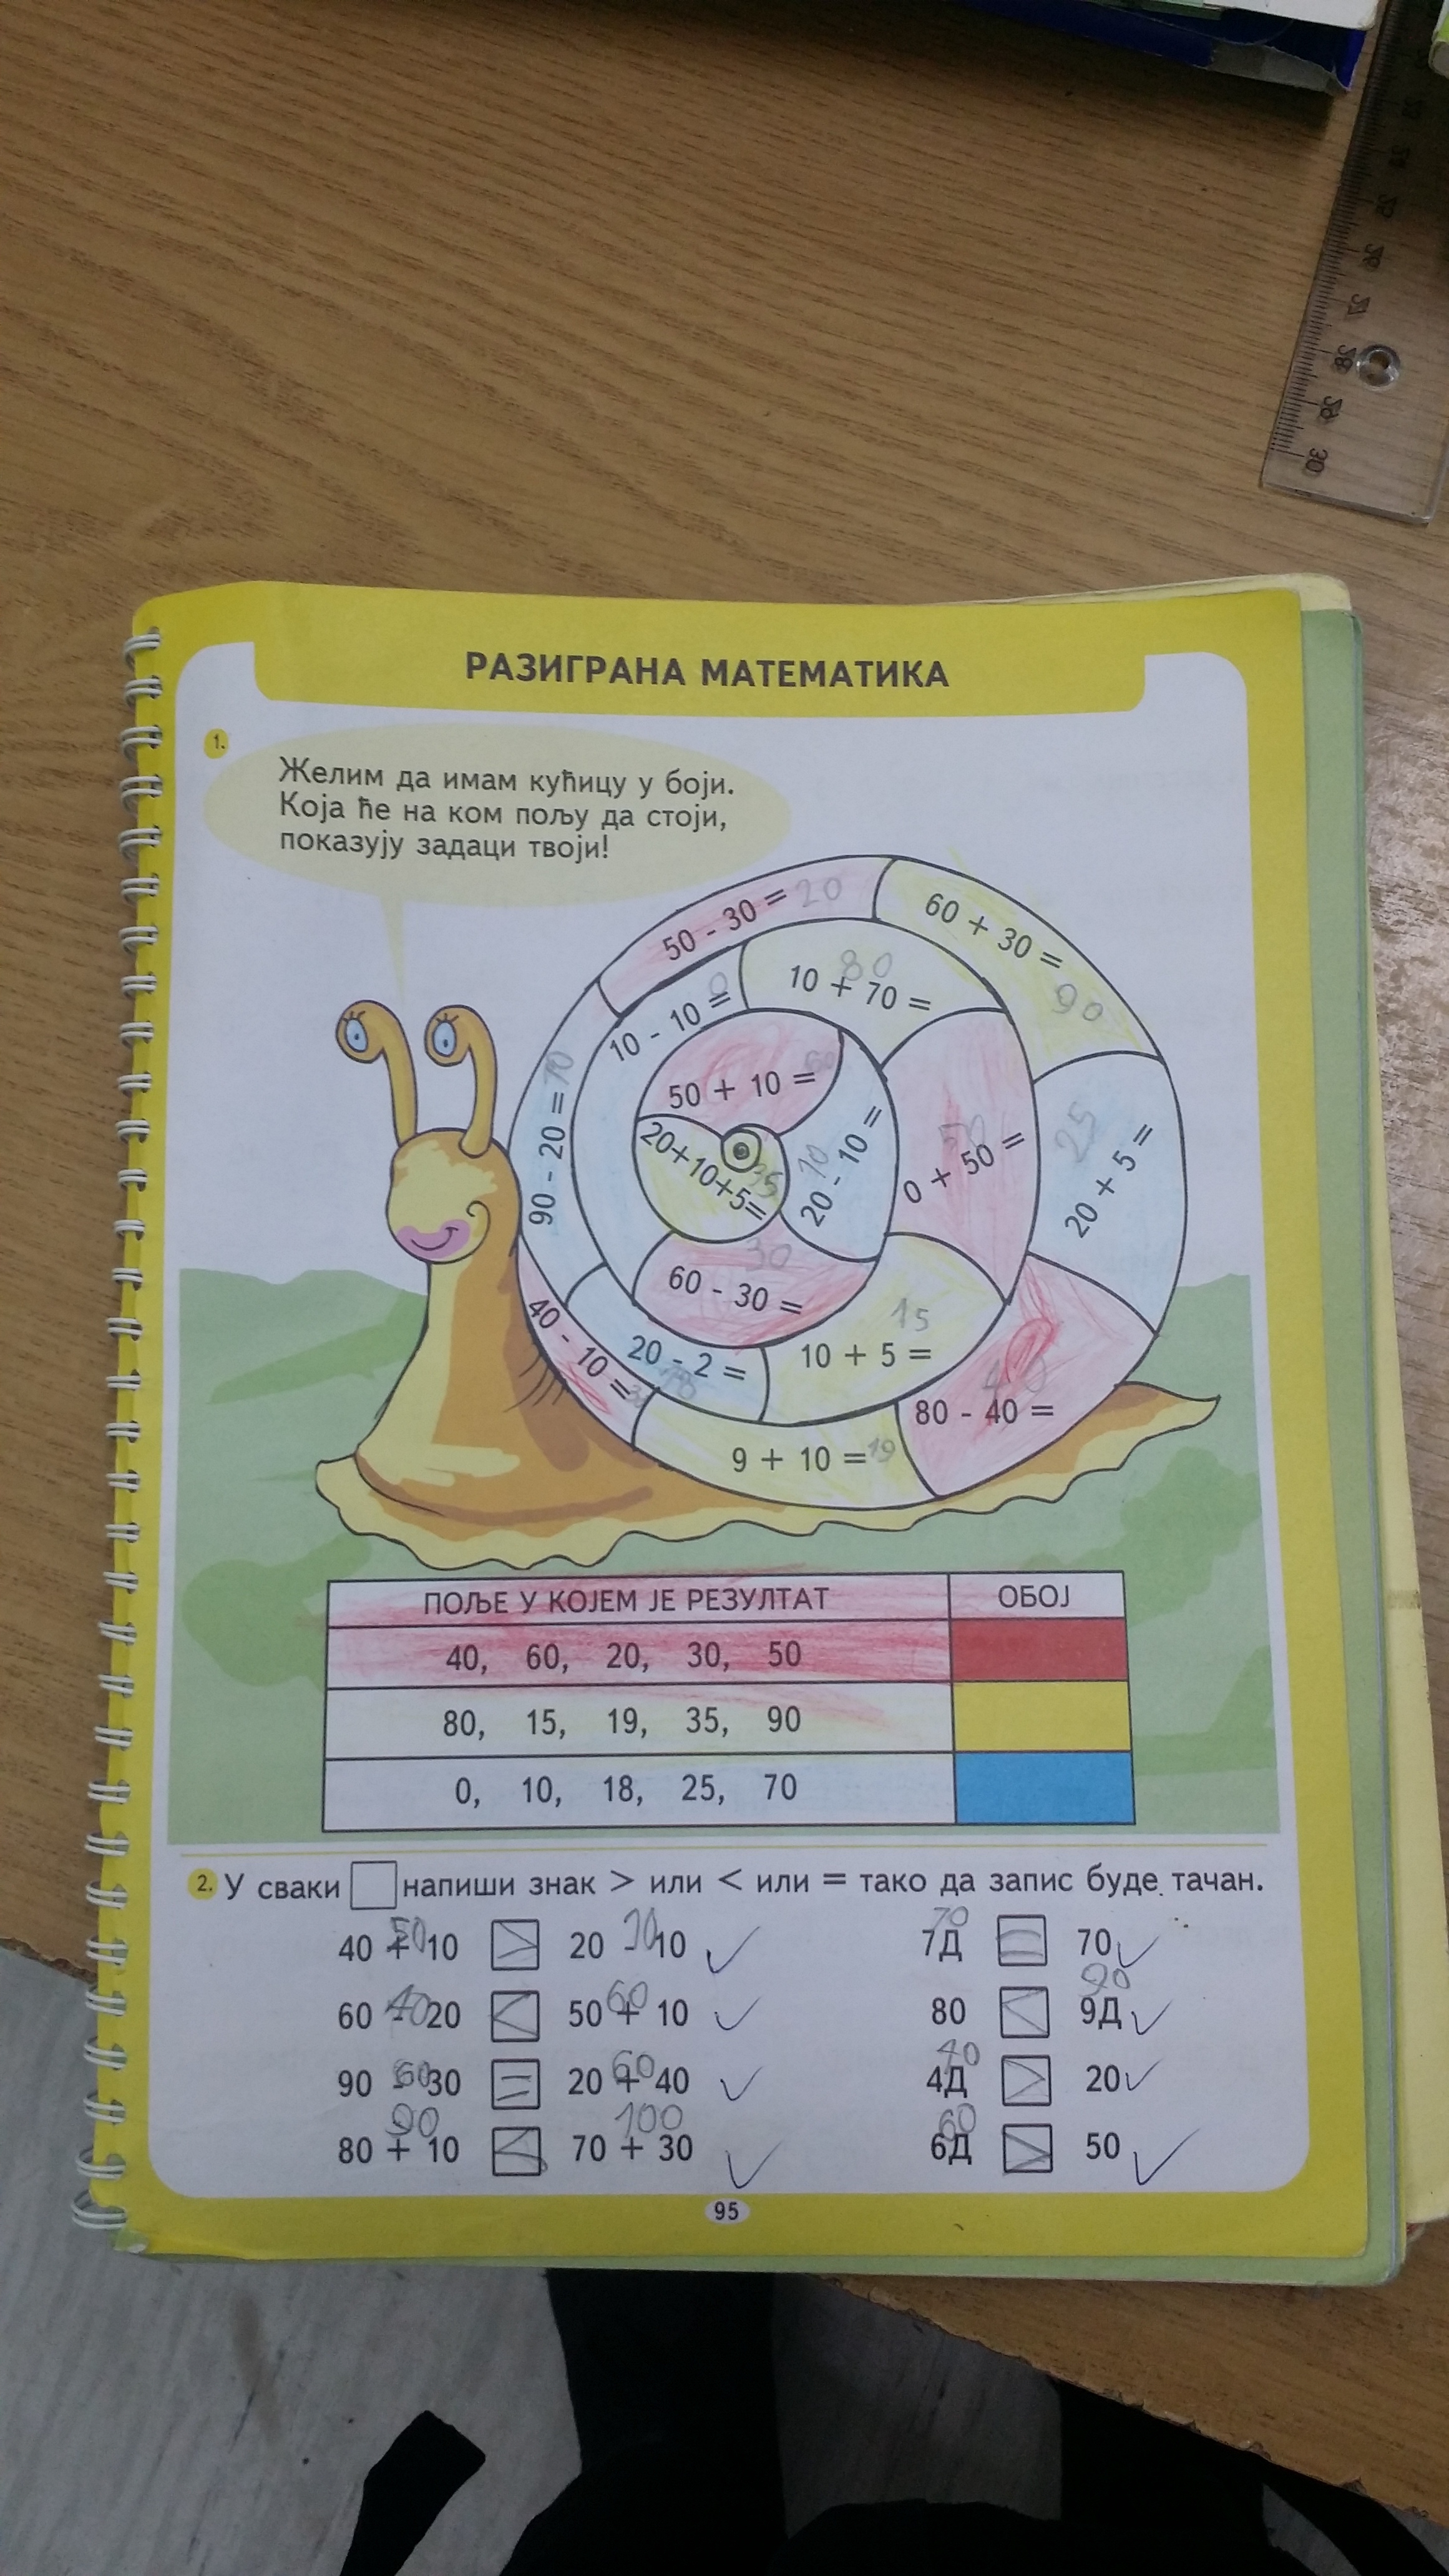 РАЗИГРАНА МАТЕМАТИКА
1.
Желим да имам кућицу у боји.
Која ће на ком пољу да стоји,
показују задаци твоји!
50 - 30 = 20
60 + 30 = 90
10 - 10 = 0
10 + 70 = 80
90 - 20 = 70
50 + 10 = 60
20+10+5= 35
20 - 10 = 10
0 + 50 = 50
20 + 5 = 25
60 - 30 = 30
40 - 10 = 30
20 - 2 = 18
10 + 5 = 15
80 - 40 = 40
9 + 10 = 19
ПОЉЕ У КОЈЕМ ЈЕ РЕЗУЛТАТ ОБОЈ
40, 60, 20, 30, 50
80, 15, 19, 35, 90
0, 10, 18, 25, 70
2. У сваки □ напиши знак > или < или = тако да запис буде тачан.
50 10 70
40 + 10 > 20 - 10 ✓ 7Д = 70 ✓
40 60 90
60 - 20 < 50 + 10 ✓ 80 < 9Д ✓
60 60 40
90 - 30 = 20 + 40 ✓ 4Д > 20 ✓
90 100 60
80 + 10 < 70 + 30 ✓ 6Д > 50 ✓
95
30 29 28 27 26 25